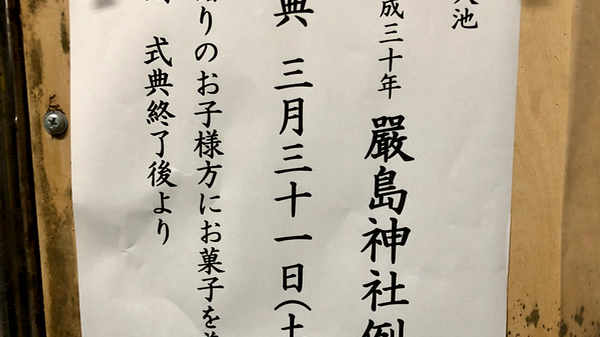 池
成三十年 嚴島神社例
典 三月三十一日(土
りのお子様方にお菓子を
式典終了後より